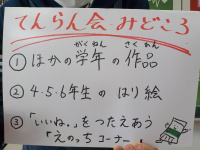 てんらん会 みどころ
① ほかの学年の作品
がくねん さくひん
② 4・5・6年生の はり絵
③ 「いいね。」をつたえあう
「えのっちコーナー」